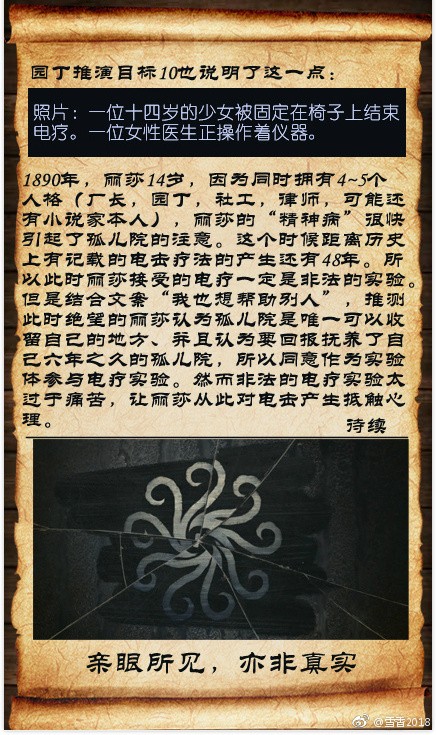 园丁推演目标10也说明了这一点：
照片：一位十四岁的少女被固定在椅子上结束
电疗。一位女性医生正操作着仪器。
1890年，丽莎14岁，因为同时拥有4~5个
人格（厂长，园丁，社工，律师，可能还
有小说家本人），丽莎的“精神病”很快
引起了孤儿院的注意。这个时候距离历史
上有记载的电击疗法的产生还有48年。所
以此时丽莎接受的电疗一定是非法的实验。
但是结合文案“我也想帮助别人”，推测
此时绝望的丽莎认为孤儿院是唯一可以收
留自己的地方、并且认为要回报抚养了自
己六年之久的孤儿院，所以同意作为实验
体参与电疗实验。然而非法的电疗实验太
过于痛苦，让丽莎从此对电击产生抵触心
理。
待续
亲眼所见，亦非真实
@雪香2018